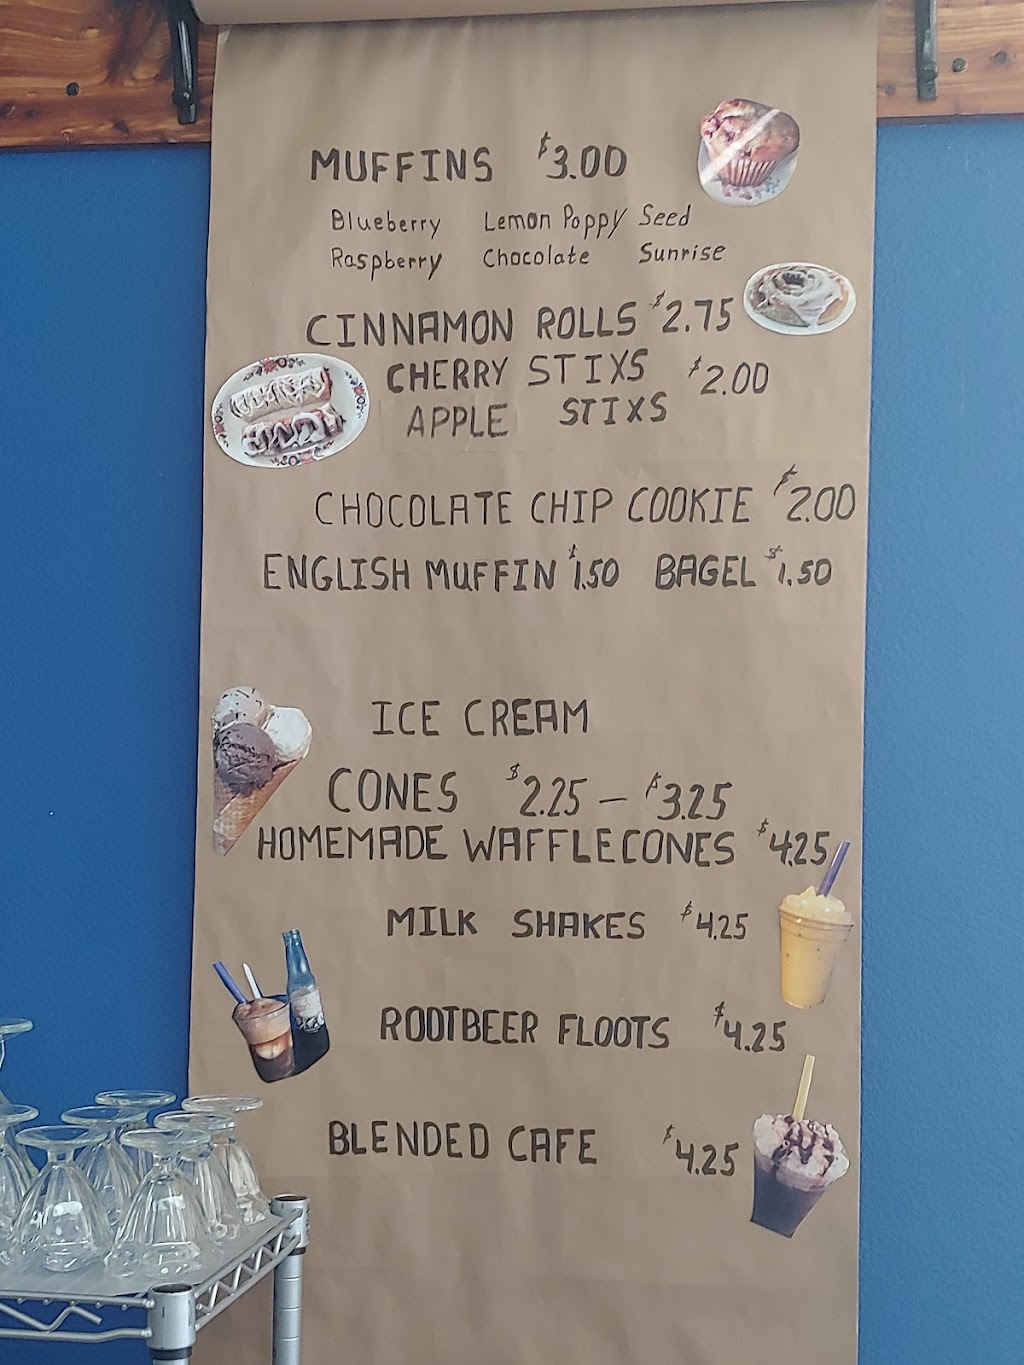 MUFFINS $3.00
Blueberry Lemon Poppy Seed
Raspberry Chocolate Sunrise
CINNAMON ROLLS $2.75
CHERRY STIXS $2.00
APPLE STIXS
CHOCOLATE CHIP COOKIE $2.00
ENGLISH MUFFIN $1.50 BAGEL $1.50
ICE CREAM
CONES $2.25 – $3.25
HOMEMADE WAFFLECONES $4.25
MILK SHAKES $4.25
ROOTBEER FLOOTS $4.25
BLENDED CAFE $4.25